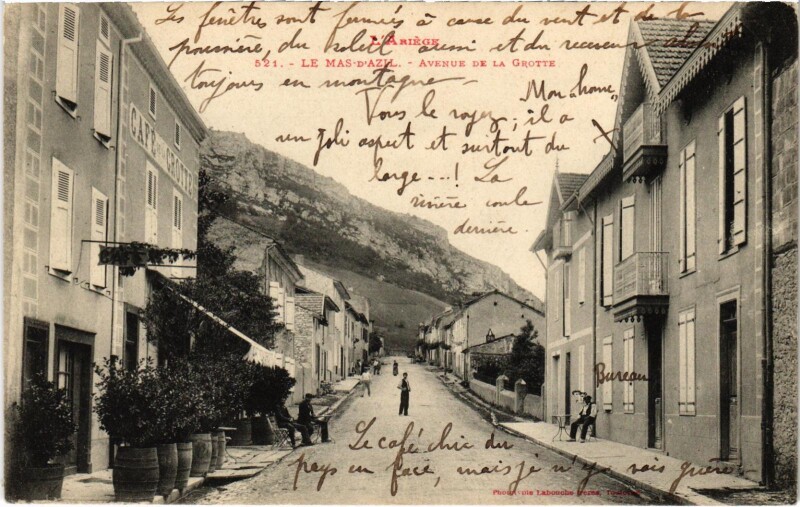 Les fenêtres sont fermées à cause du vent et de la
poussière, du soleil aussi et du
toujours en montagne -
L'ARIÈGE
521. - LE MAS-D'AZIL. - AVENUE DE LA GROTTE
Mon home,
Vous le voyez; il a
un joli aspect et surtout du
large ---! La
rivière coule
derrière.
CAFÉ DE LA GROTTE
Bureau
Le café chic du
pays en face, mais je n'y vais guère
Phototypie Labouche frères, Toulouse